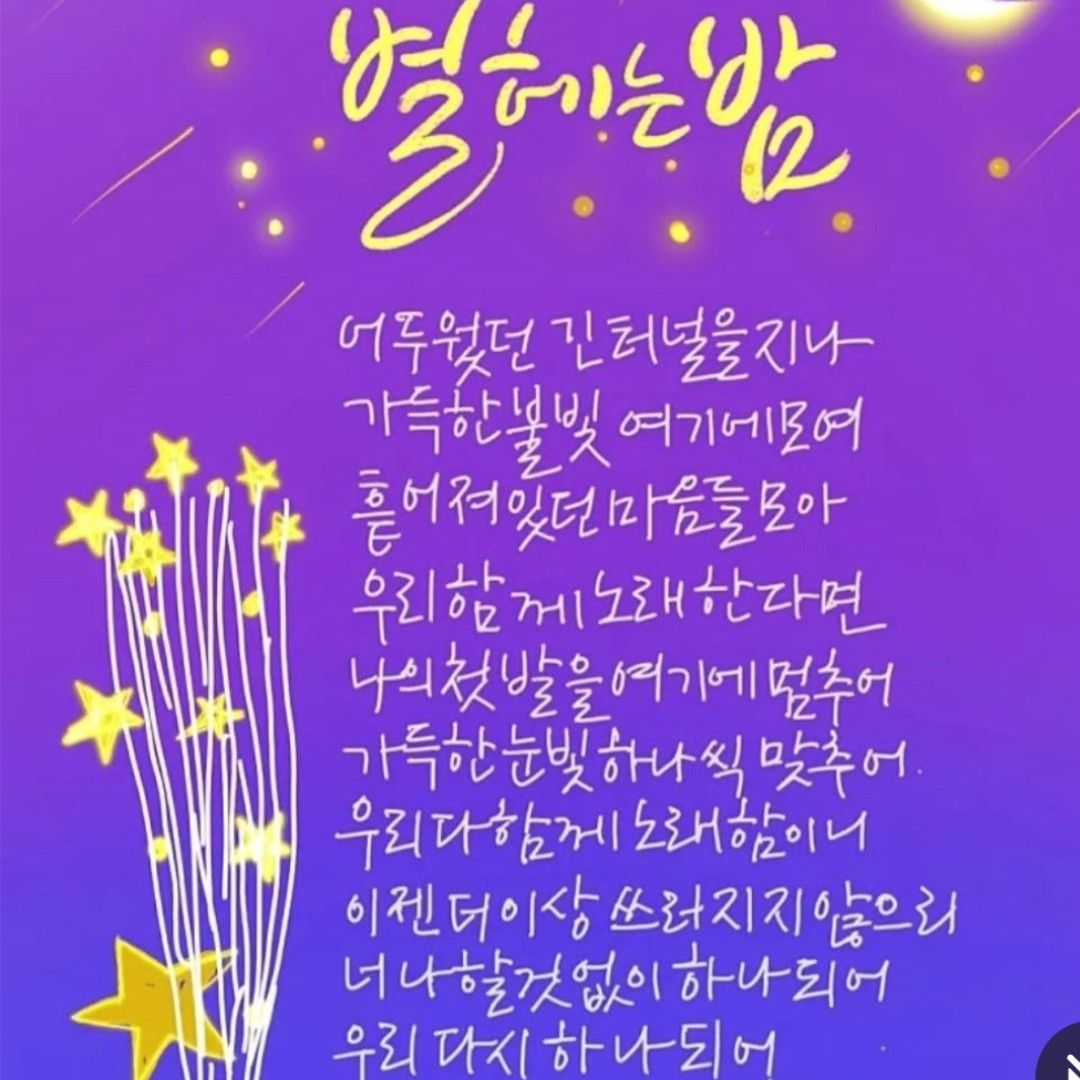 별 헤는 밤
어두웠던 긴 터널을 지나
가득한 불빛 여기에 모여
흩어져있던 마음들 모아
우리 함께 노래한다면
나의 첫 발을 여기에 멈추어
가득한 눈빛 하나씩 맞추어.
우리 다 함께 노래함이니
이젠 더 이상 쓰러지지 않으리
너 나 할 것 없이 하나되어
우리 다시 하나되어